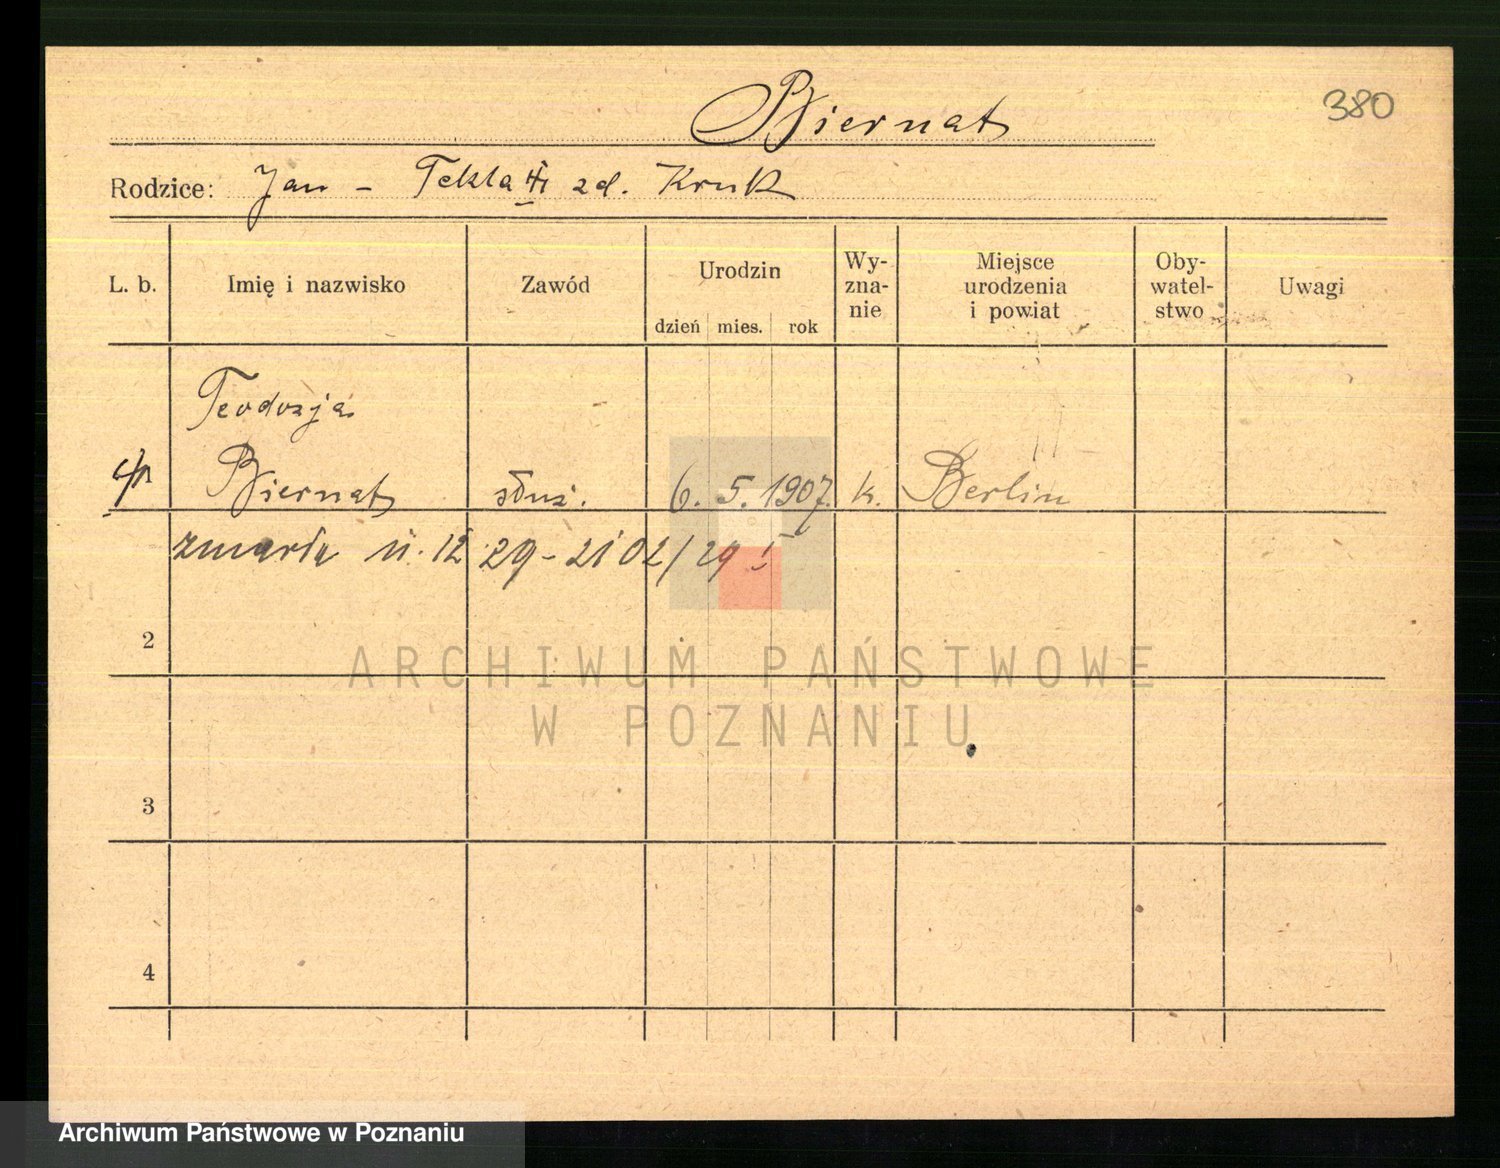 380
Biernat
Rodzice: Jan - Tekla zd. Kruk
L. b. Imię i nazwisko Zawód Urodzin dzień mies. rok Wy-zna-nie Miejsce urodzenia i powiat Oby-watel-stwo Uwagi
Teodozja
Biernat służ. 6. 5. 1907. k. Berlin
zmarła 12 29 - 2102/29
2
3
4
ARCHIWUM PAŃSTWOWE
W POZNANIU
Archiwum Państwowe w Poznaniu